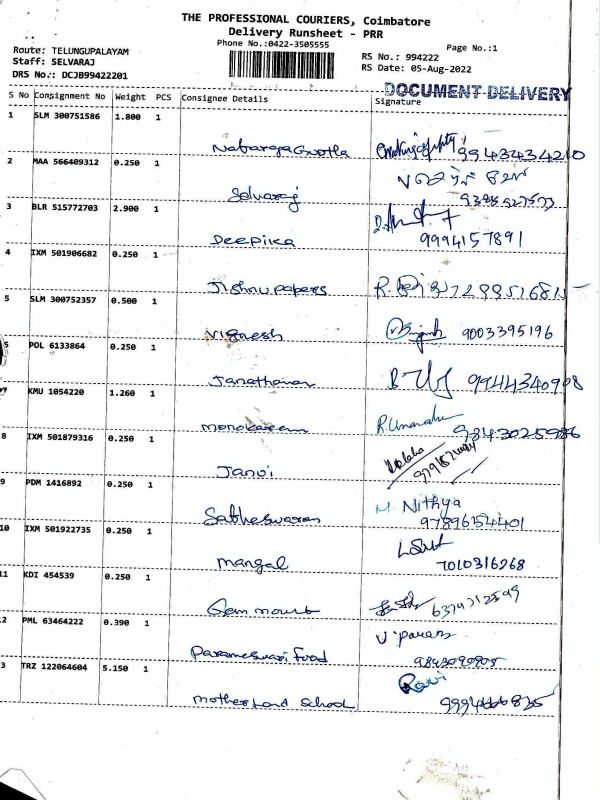 THE PROFESSIONAL COURIERS, Coimbatore
Delivery Runsheet - PRR
Phone No.:0422-3505555
Page No.:1
Route: TELUNGUPALAYAM
Staff: SELVARAJ
DRS No.: DCJB99422201
RS No.: 994222
RS Date: 05-Aug-2022
DOCUMENT DELIVERY
S No Consignment No Weight PCS Consignee Details Signature
1 SLM 300751586 1.800 1
9943434210
2 MAA 566409312 0.250 1
Selvaraj
3 BLR 515772703 2.900 1
Deepika 9994157891
4 IXM 501906682 0.250 1
Jishnu papers
5 SLM 300752357 0.500 1
Vignesh 9003395196
POL 6133864 0.250 1
Janathanan 9944340908
KMU 1054220 1.260 1
9843025986
8 IXM 501879316 0.250 1
Janvi
9 PDM 1416892 0.250 1
M. Nithya
Satheswaran 97896154401
10 IXM 501922735 0.250 1
Mangal 7010316268
11 KDI 454539 0.250 1
2 PML 63464222 0.390 1
Parameswari Food
3 TRZ 122064604 5.150 1
Ravi
Motherland School